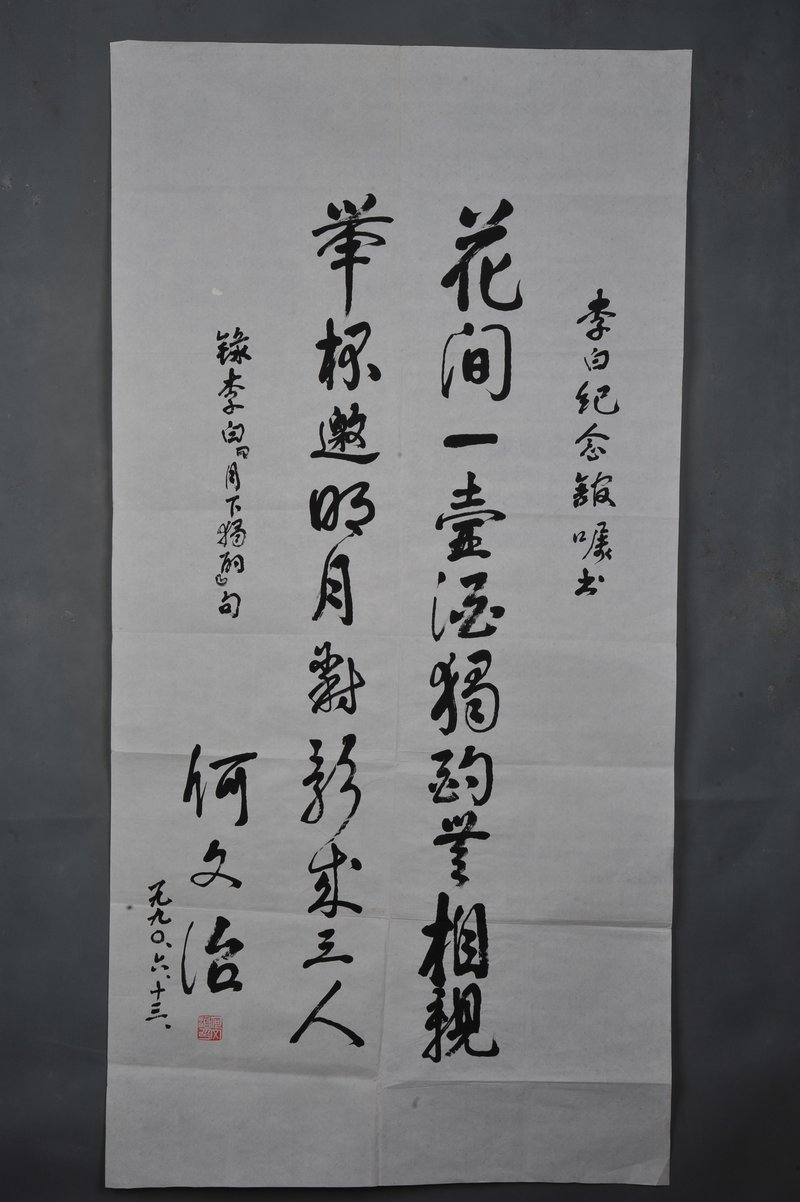 李白纪念馆嘱书
花间一壶酒獨酌無相親
举杯邀明月對影成三人
録李白「月下獨酌」句
何文治
一九九〇、六、十三、